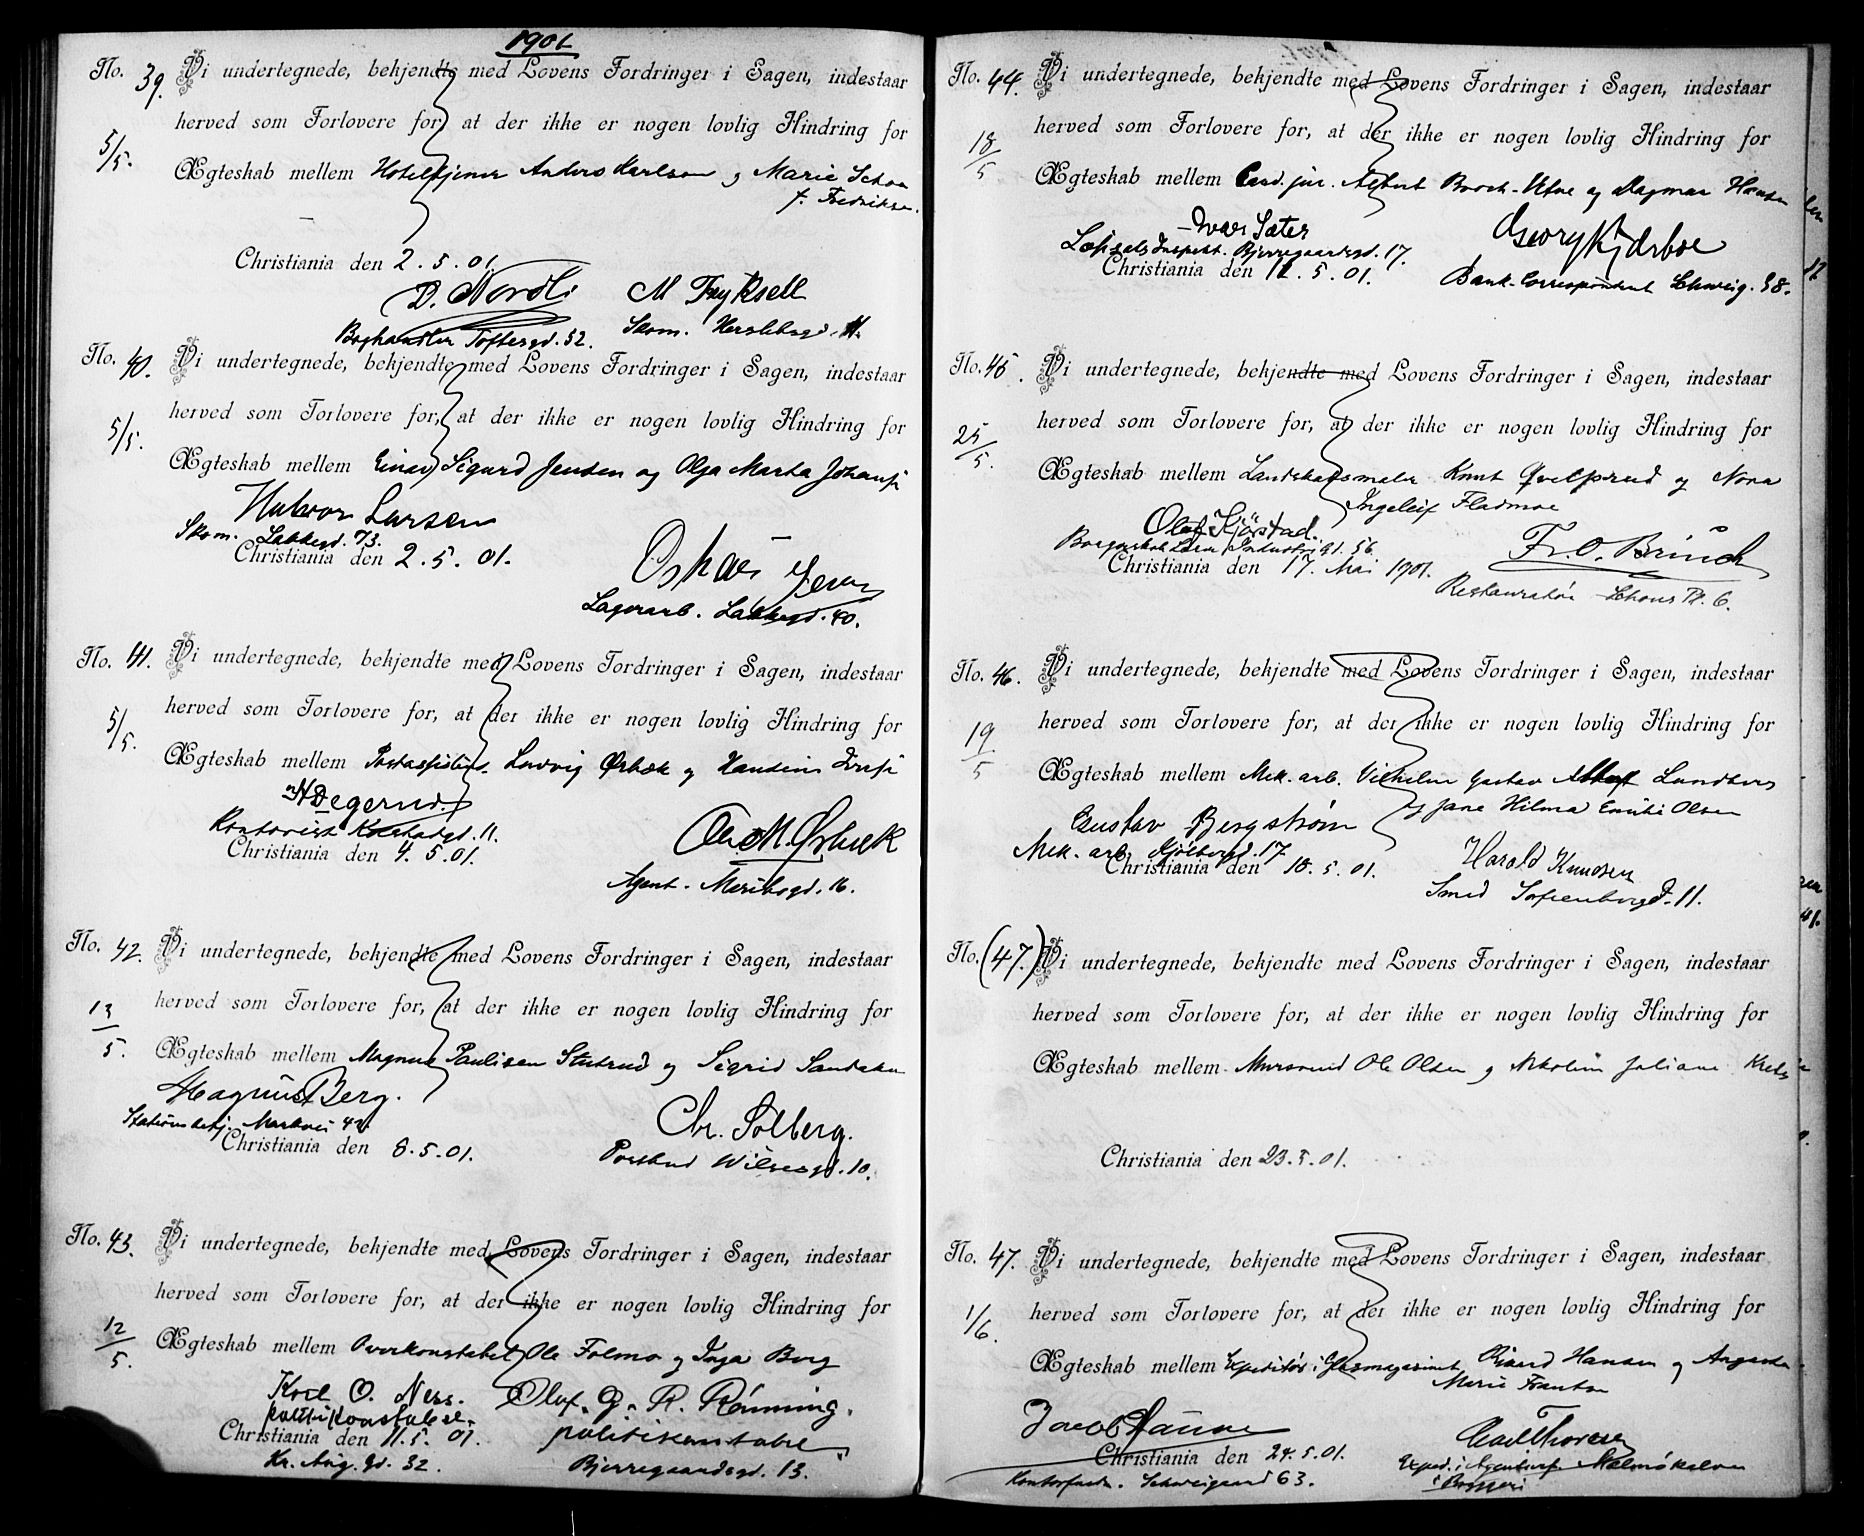 1901
No. 39. Vi undertegnede, bekjendte med Lovens Fordringer i Sagen, indestaar
herved som Forlovere for, at der ikke er nogen lovlig Hindring for
5/5.
Ægteskab mellem Hoteltjener Anders Karlson og Marie Schou
f. Fredriksen.
Christiania den 2.5.01.
D. Nordli M Fryksell
Boghandler Toftesgd. 52. Skom. Herslebsgd.
No. 40. Vi undertegnede, bekjendte med Lovens Fordringer i Sagen, indestaar
herved som Forlovere for, at der ikke er nogen lovlig Hindring for
5/5.
Ægteskab mellem Einar Sigurd Jensen og Olga Marta Johansen
Halvor Larsen
Skom. Lakkegd. 73.
Christiania den 2.5.01.
Oskar Jensen
Lagerarb. Lakkegd. 40.
No. 41. Vi undertegnede, bekjendte med Lovens Fordringer i Sagen, indestaar
herved som Forlovere for, at der ikke er nogen lovlig Hindring for
5/5.
Ægteskab mellem Postassistent Ludvig Ørbæk og
Degerud.
Kontorist 11.
Christiania den 4.5.01.
M. Ørbæk
Agent. 16.
No. 42. Vi undertegnede, bekjendte med Lovens Fordringer i Sagen, indestaar
herved som Forlovere for, at der ikke er nogen lovlig Hindring for
13/5.
Ægteskab mellem Magnus Paulisen Stutrud og Sigrid Sandaker
Magnus Berg.
Stationsbetj. Markvei 42
Christiania den 8.5.01.
Chr. Solberg.
Postbud Wilsesgd. 10.
No. 43. Vi undertegnede, bekjendte med Lovens Fordringer i Sagen, indestaar
herved som Forlovere for, at der ikke er nogen lovlig Hindring for
12/5.
Ægteskab mellem Overkonstabel Ole Folmo og Inga Berg
Karl O. Ness. Oluf. G. R. Rönning.
politikonstabel.
Christiania den 11.5.01. politikonstabel
Kr. Aug. gd. 32. Bjerregaardsgd. 13.
No. 44. Vi undertegnede, bekjendte med Lovens Fordringer i Sagen, indestaar
herved som Forlovere for, at der ikke er nogen lovlig Hindring for
18/5
Ægteskab mellem Cand. jur. Albert Broch-Utne og Dagmar Hansen
Ivar Sæter Georg Kjderboe
Løpsels Inspekt. Bjerregaardsgd. 17.
Christiania den 12.5.01. Bank-Correspondent Schweig. 58.
No. 45. Vi undertegnede, bekjendte med Lovens Fordringer i Sagen, indestaar
herved som Forlovere for, at der ikke er nogen lovlig Hindring for
25/5.
Ægteskab mellem Landskabsmaler Knut Qvelprud og Nora
Ingeleif Fladmoe
Olaf Kjöstad. Fr. O. Brinch
Industrigt. 56
Christiania den 17. Mai 1901.
Restauratør Schous Pl. 6.
No. 46. Vi undertegnede, bekjendte med Lovens Fordringer i Sagen, indestaar
herved som Forlovere for, at der ikke er nogen lovlig Hindring for
19/5
Ægteskab mellem Mek. arb. Vilhelm Gustav Albert Lundberg
og Jane Hilma Emilie Olsen
Gustav Bergstrøm
Mek. arb. Kjølberggd. 17
Christiania den 18.5.01. Harald Knudsen
Smed Sofienberggd. 11.
No. (47.) Vi undertegnede, bekjendte med Lovens Fordringer i Sagen, indestaar
herved som Forlovere for, at der ikke er nogen lovlig Hindring for
Ægteskab mellem Mursvend Ole Olsen og Nikoline Juliane
Christiania den 23.5.01.
No. 47. Vi undertegnede, bekjendte med Lovens Fordringer i Sagen, indestaar
herved som Forlovere for, at der ikke er nogen lovlig Hindring for
1/6.
Ægteskab mellem Expeditør i Glasmagasinet Eivind Hansen og Augusta
Marie Frantzen
Jacob Hansen Carl Thoresen
Christiania den 24.5.01.
Kontorfuldm. Schweigaard 63. Exped. i Malmøkalven
i Byggeri